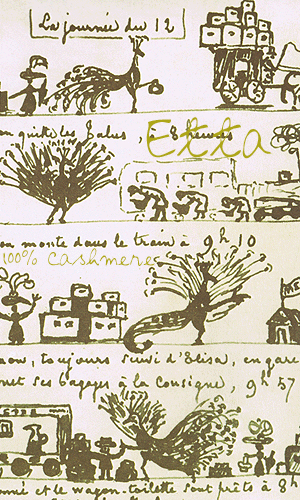 La journée du 12
on quitte les Palus, à 8 heures
Etta
on monte dans le train à 9h 10
100% cashmere
non, toujours suivi d'Elisa, en gare
met ses bagages à la consigne, 9h 57
et le wagon-toilette sont prêts à 8h